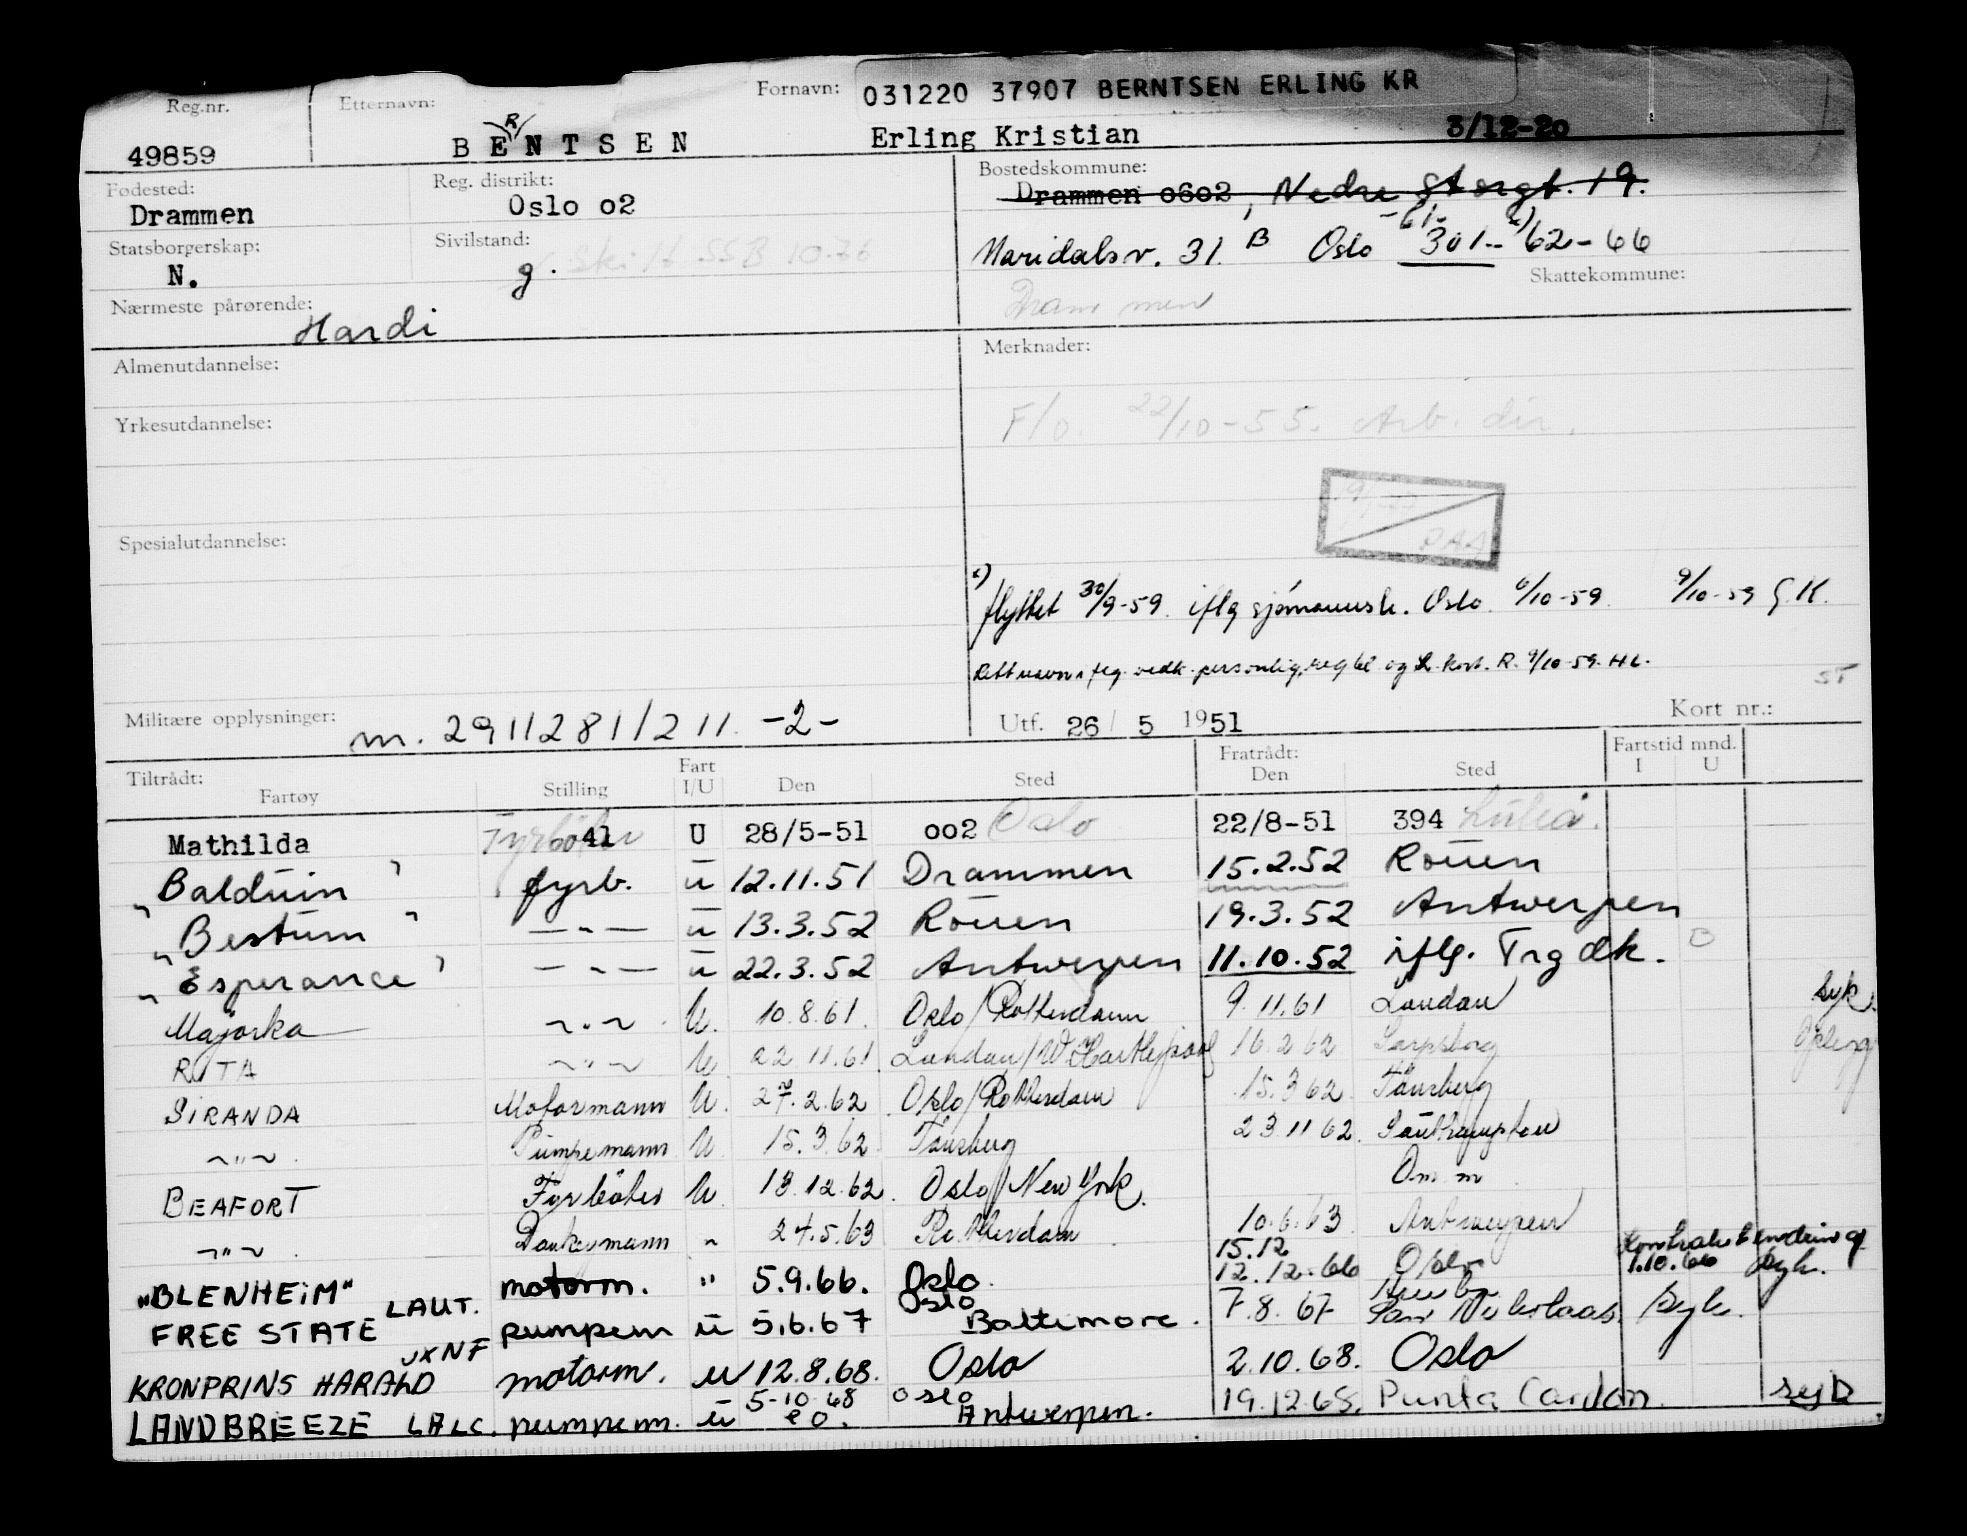 Reg.nr. Etternavn: Fornavn: 031220 37907 BERNTSEN ERLING KR
49859 BERNTSEN Erling Kristian 3/12-20
Fødested: Reg. distrikt: Bostedskommune:
Drammen Oslo 02 Drammen 0602, Nedre Storgt. 19.
Statsborgerskap: Sivilstand: Maridalsv. 31 B Oslo 301 -61- 62-66
N. g. Skilt SSB 10.76 Skattekommune:
Nærmeste pårørende: Drammen
Hardi
Almenutdannelse: Merknader:
Yrkesutdannelse: F/o. 22/10-55. Arb. dir.
PAA
Spesialutdannelse:
flyttet 30/9-59. iflg sjømannsk. Oslo. 6/10-59. 9/10-59 G.K.
9/10-59. HL.
Militære opplysninger: m. 2911281/211. -2- Utf. 26/ 5 1951 Kort nr.:
Tiltrådt: Fratrådt: Fartstid mnd.
Fartøy Stilling Fart I/U Den Sted Den Sted I U
Mathilda Fyrbøter 41 U 28/5-51 002 Oslo 22/8-51 394 Luleå.
"Balduin" fyrb. u 12.11.51 Drammen 15.2.52 Rouen
"Bestum" — " — u 13.3.52 Rouen 19.3.52 Antwerpen
"Esperance" — " — u 22.3.52 Antwerpen 11.10.52 iflg. Trg dk.
Majorka ~ " ~ U. 10.8.61. Oslo/Rotterdam 9.11.61 London syk.
RUTA ~ " ~ U 22.11.61. London/W. Hartlepool 16.2.62 Sarpsborg
SIRANDA Motormann U. 27.2.62 Oslo/Rotterdam 15.3.62 Tønsberg
~ " ~ Pumpemann U 15.3.62 Tønsberg 23.11.62. Southampton
BEAFORT Fyrbøter U 18.12.62. Oslo/New York. Om m
~ " ~ Donkeymann " 24.5.63 Rotterdam 10.6.63 Antwerpen
"BLENHEIM" motorm. " 5.9.66. Oslo. 15.12 12.12.66 Oslo 1.10.66 syk.
FREE STATE LAUT. pumpem u 5.6.67 Oslo Baltimore. 7.8.67 San Nicholaas syk.
KRONPRINS HARALD JXNF motorm. u 12.8.68. Oslo 2.10.68. Oslo
LANDBREEZE LALC. pumpem. u 5-10-68 Oslo Antwerpen. 19.12.68. Punta Cardon. syk